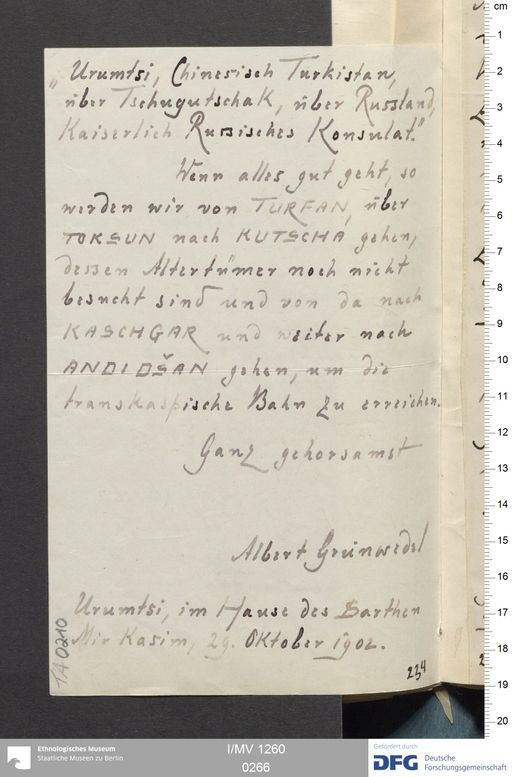 „Urumtsi, Chinesisch Turkistan,
über Tschugutschak, über Russland,
Kaiserlich Russisches Konsulat."
Wenn alles gut geht, so
werden wir von TURFAN, über
TOKSUN nach KUTSCHA gehen,
dessen Altertümer noch nicht
besucht sind und von da nach
KASCHGAR und weiter nach
ANDIDŠAN gehen, um die
transkaspische Bahn zu erreichen.
Ganz gehorsamst
Albert Grünwedel
Urumtsi, im Hause des Sarthen
Mir Kasim, 29. Oktober 1902.
234
TA 0210
cm
1
2
3
4
5
6
7
8
9
10
11
12
13
14
15
16
17
18
19
20
Ethnologisches Museum
Staatliche Museen zu Berlin
I/MV 1260
0266
Gefördert durch
DFG Deutsche
Forschungsgemeinschaft